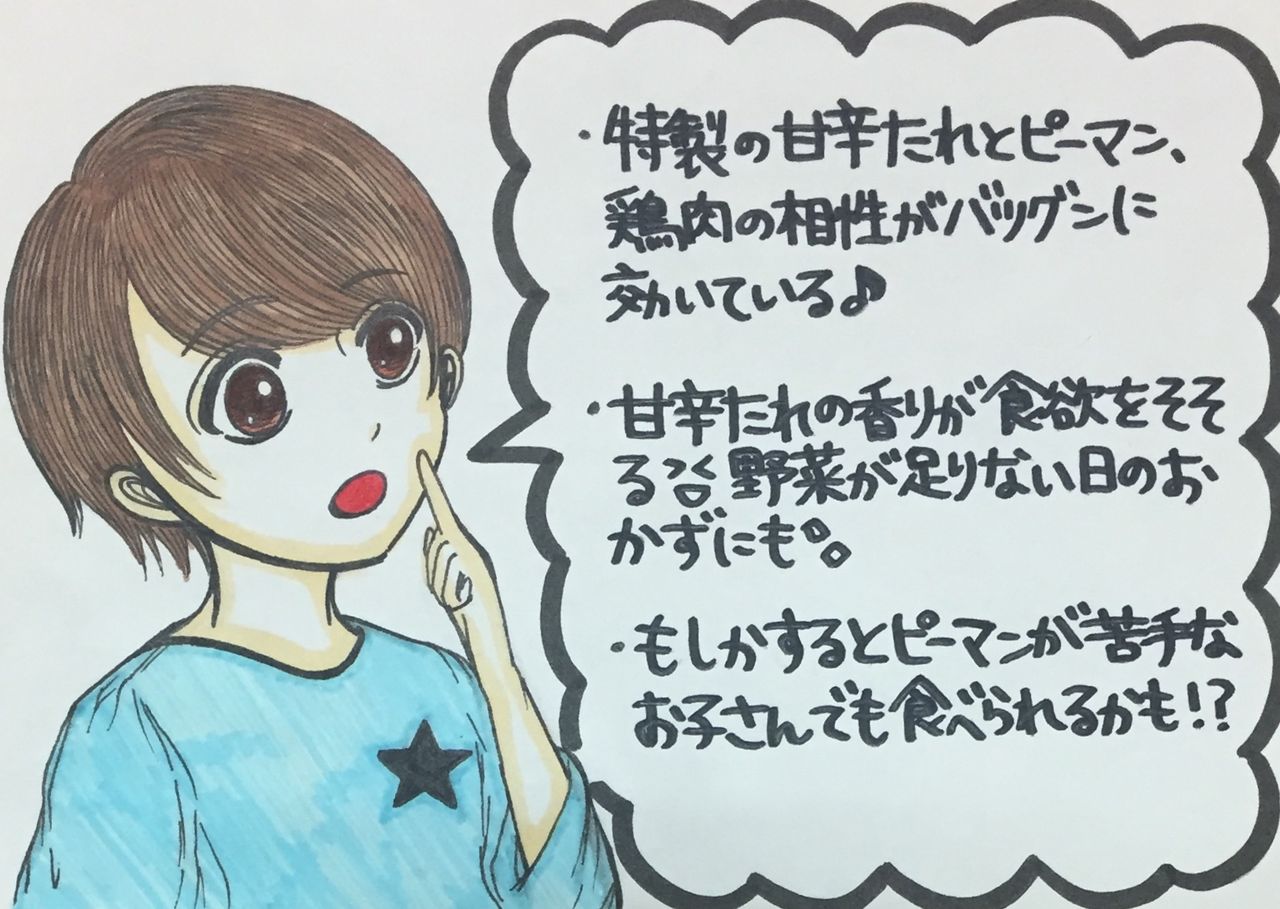 ・特製の甘辛たれとピーマン、
鶏肉の相性がバツグンに
効いている♪
・甘辛たれの香りが食欲をそそ
る 野菜が足りない日のお
かずにも。
・もしかするとピーマンが苦手な
お子さんでも食べられるかも!?